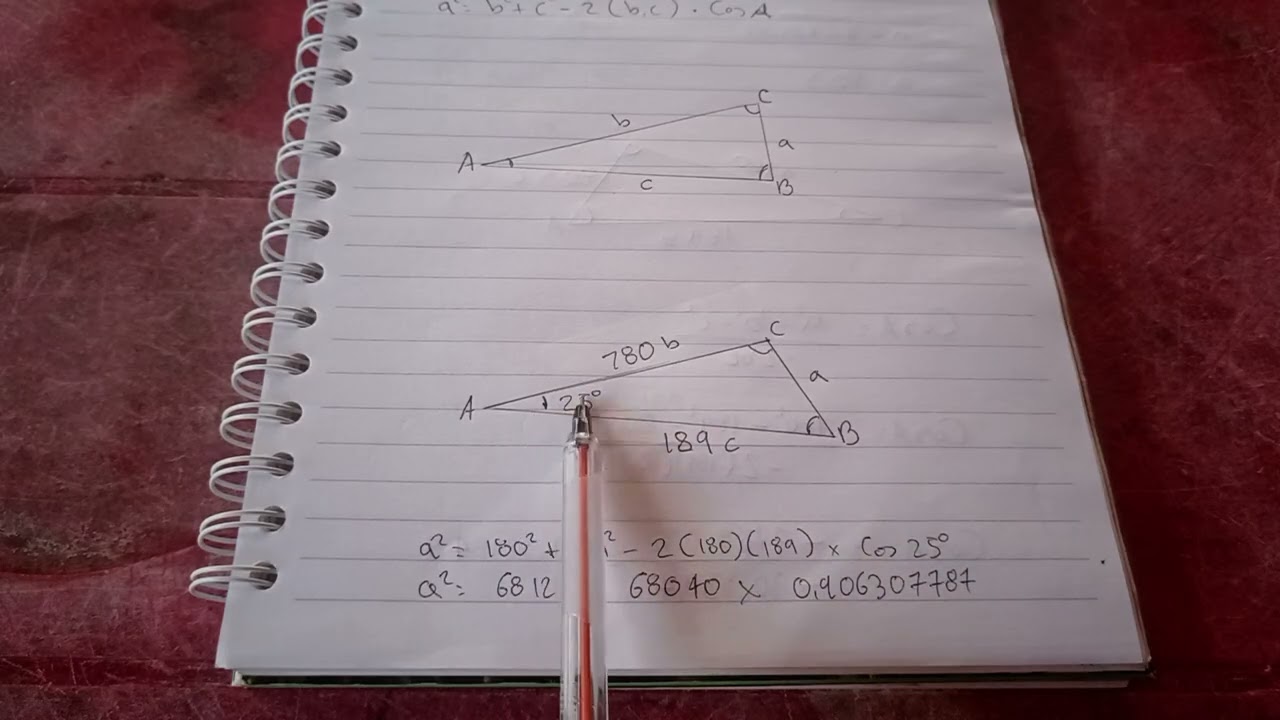 a² = b² + c² - 2(b.c) . Cos A
C
b
A
a
c
B
C
780 b
a
A
25°
B
189 c
a² = 180² + ² - 2(180)(189) x Cos 25°
a² = 6812 68040 x 0,906307787